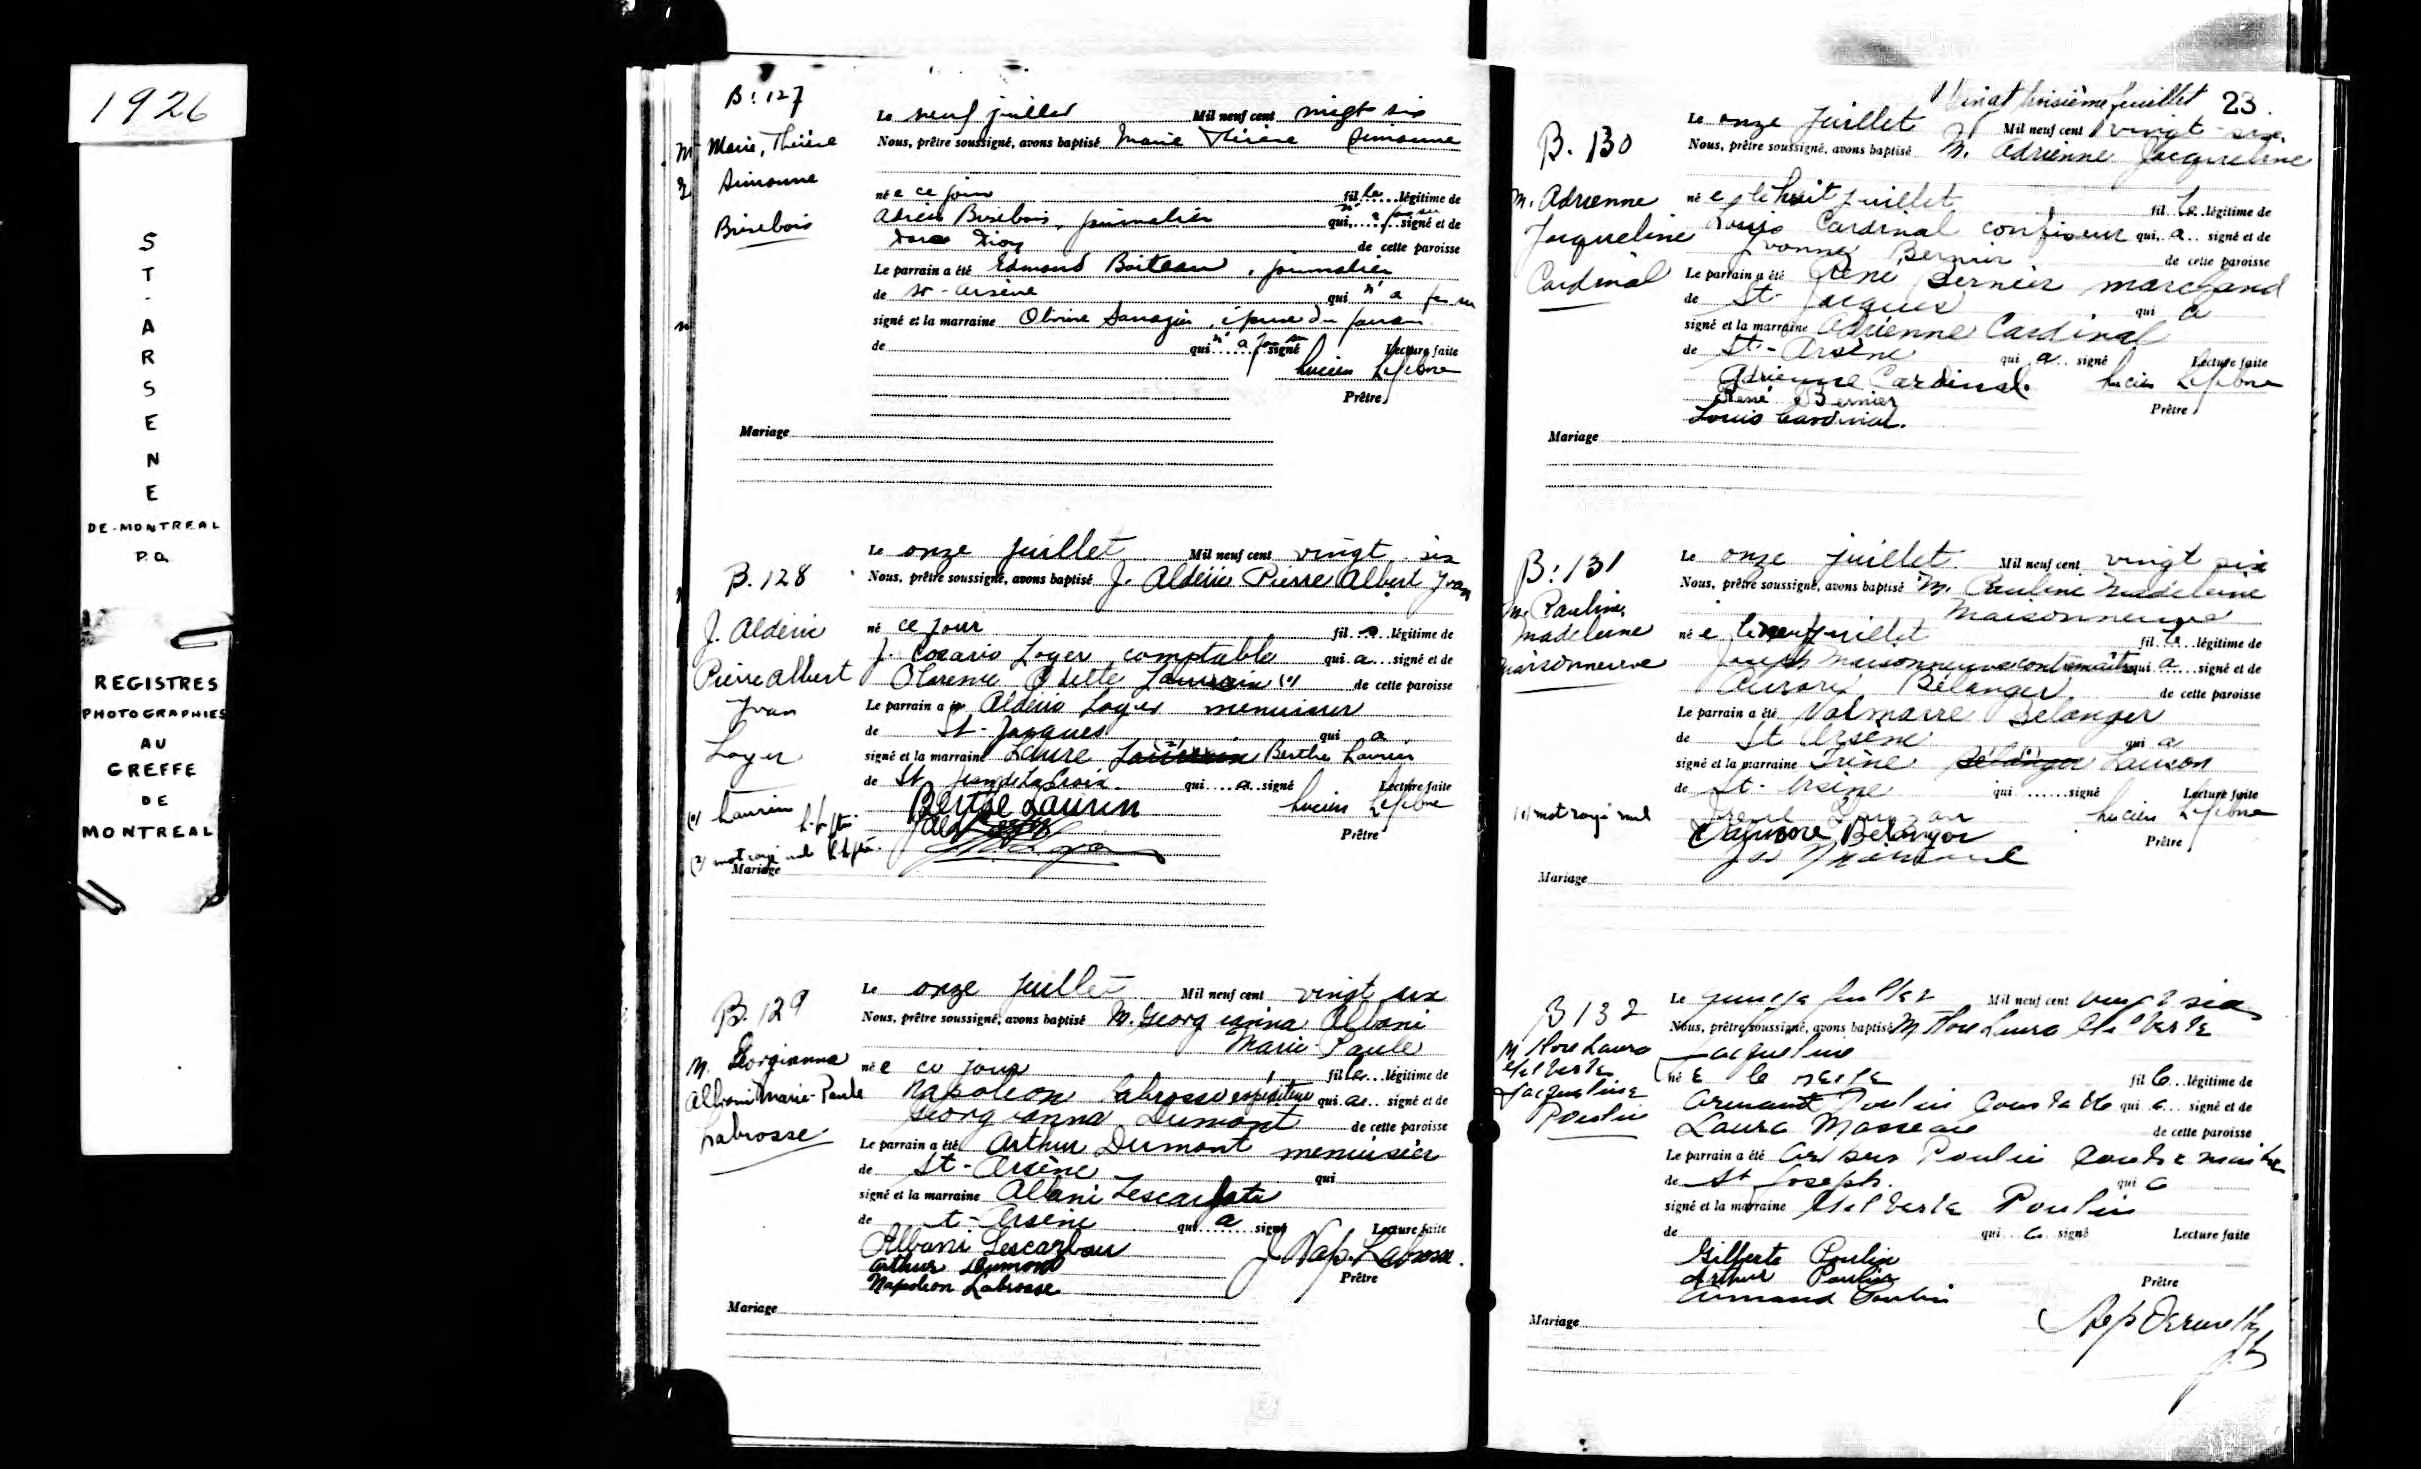 1926
ST-ARSENE
DE-MONTREAL
P.Q.
REGISTRES
PHOTOGRAPHIES
AU
GREFFE
DE
MONTREAL
B: 127
Marie, Thérèse
Simonne
Brisebois
Le neuf juillet Mil neuf cent vingt six
Nous, prêtre soussigné, avons baptisé Marie Thérèse Simonne
né e ce jour fil le légitime de
Adrien Brisebois, journalier qui n'a pas su signé et de
Dion de cette paroisse
Le parrain a été Edmond Boiteau, journalier
de St-Arsène qui n'a pas su
signé et la marraine Olivine Sarrazin, épouse du parrain
de qui n'a pas su signé Lecture faite
Lucien Lefebvre
Prêtre
Mariage
B. 128
J. Aldéric
Pierre Albert
Yvan
Loyer
(1) Laurin
(2) mot rayé nul
Le onze juillet Mil neuf cent vingt six
Nous, prêtre soussigné, avons baptisé J. Aldéric Pierre Albert Yvan
né ce jour fil légitime de
J. Rosario Loyer comptable qui a signé et de
Florence Odette (1) de cette paroisse
Le parrain a été Aldéric Loyer menuisier
de St-Jacques qui a
signé et la marraine Berthe Laurin
de St Jean de la Croix qui a signé Lecture faite
Berthe Laurin Lucien Lefebvre
Prêtre
Mariage
B. 129
M. Georgianna
Albani Marie-Paule
Labrosse
Le onze juillet Mil neuf cent vingt six
Nous, prêtre soussigné, avons baptisé M. Georgianna Albani
Marie-Paule
né e ce jour fil le légitime de
Napoléon Labrosse expéditeur qui a signé et de
Georgianna Dumont de cette paroisse
Le parrain a été Arthur Dumont menuisier
de St-Arsène qui
signé et la marraine Albani Lescarbeau
de St-Arsène qui a signé Lecture faite
Albani Lescarbeau J Nap. Labrosse.
Arthur Dumont
Napoléon Labrosse
Prêtre
Mariage
Vingt troisième feuillet 23.
B. 130
M. Adrienne
Jacqueline
Cardinal
Le onze juillet Mil neuf cent vingt-six
Nous, prêtre soussigné, avons baptisé M. Adrienne Jacqueline
né e le huit juillet fil le légitime de
Louis Cardinal confiseur qui a signé et de
Yvonne Bernier de cette paroisse
Le parrain a été René Bernier marchand
de St-Jacques qui a
signé et la marraine Adrienne Cardinal
de St-Arsène qui a signé Lecture faite
Adrienne Cardinal. Lucien Lefebvre
René Bernier
Prêtre
Louis Cardinal.
Mariage
B: 131
M. Pauline
Madeleine
Maisonneuve
(1) mot rayé nul
Le onze juillet Mil neuf cent vingt six
Nous, prêtre soussigné, avons baptisé M. Pauline Madeleine
Maisonneuve
né e le neuf juillet fil le légitime de
Joseph Maisonneuve contremaître qui a signé et de
Aurore Bélanger de cette paroisse
Le parrain a été Bélanger
de St Arsène qui a
signé et la marraine Irène Bélanger Lauzon
de St-Arsène qui signé Lecture faite
Irène Lauzon Lucien Lefebvre
Bélanger
Prêtre
Mariage
B 132
M Flore Laura
Gilberte
Jacqueline
Poulin
Le quinze juillet Mil neuf cent vingt six
Nous, prêtre soussigné, avons baptisé M Flore Laura Gilberte
Jacqueline
né e le fil le légitime de
Armand Poulin qui a signé et de
Laura Masseau de cette paroisse
Le parrain a été Arthur Poulin contremaître
de St Joseph. qui a
signé et la marraine Gilberte Poulin
de qui a signé Lecture faite
Gilberte Poulin
Arthur Poulin
Prêtre
Armand Poulin
Mariage